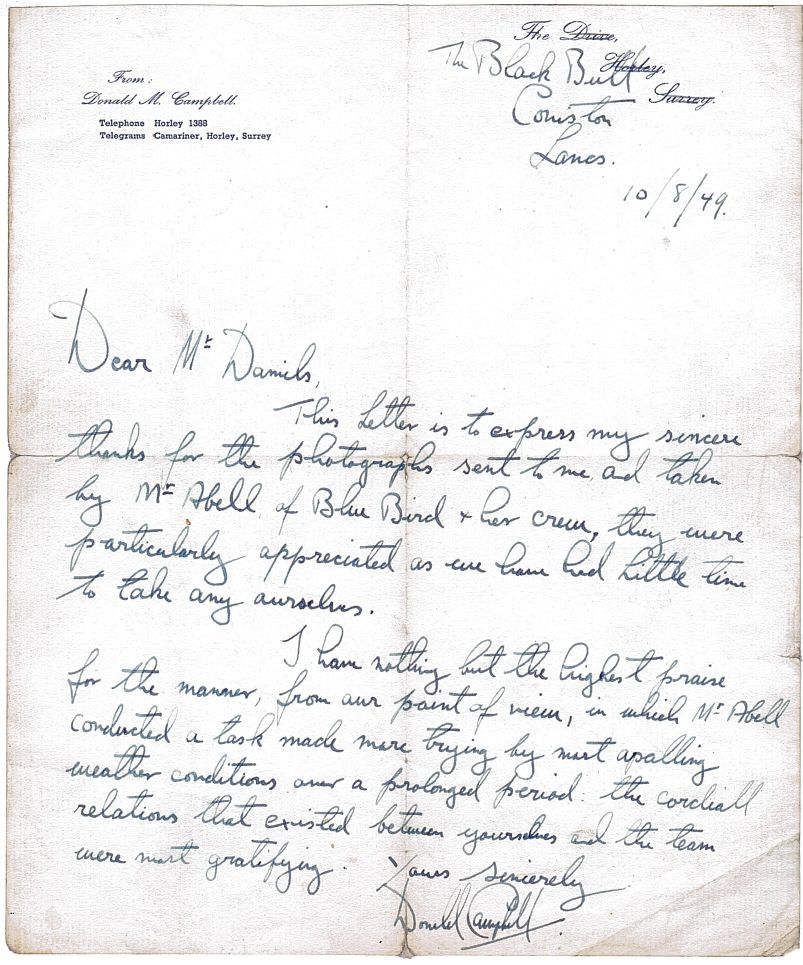 From:
Donald M. Campbell.
Telephone Horley 1388
Telegrams Camariner, Horley, Surrey
The Drive,
Horley,
Surrey.
The Black Bull
Coniston
Lancs.
10/8/49.
Dear Mr Daniels,
This Letter is to express my sincere
thanks for the photographs sent to me, and taken
by Mr Abell, of Blue Bird & her crew, they were
particularly appreciated as we have had little time
to take any ourselves.
I have nothing but the highest praise
for the manner, from our point of view, in which Mr Abell
conducted a task made more trying by most apalling
weather conditions over a prolonged period: the cordiall
relations that existed between yourselves and the team
were most gratifying.
Yours sincerely
Donald Campbell.